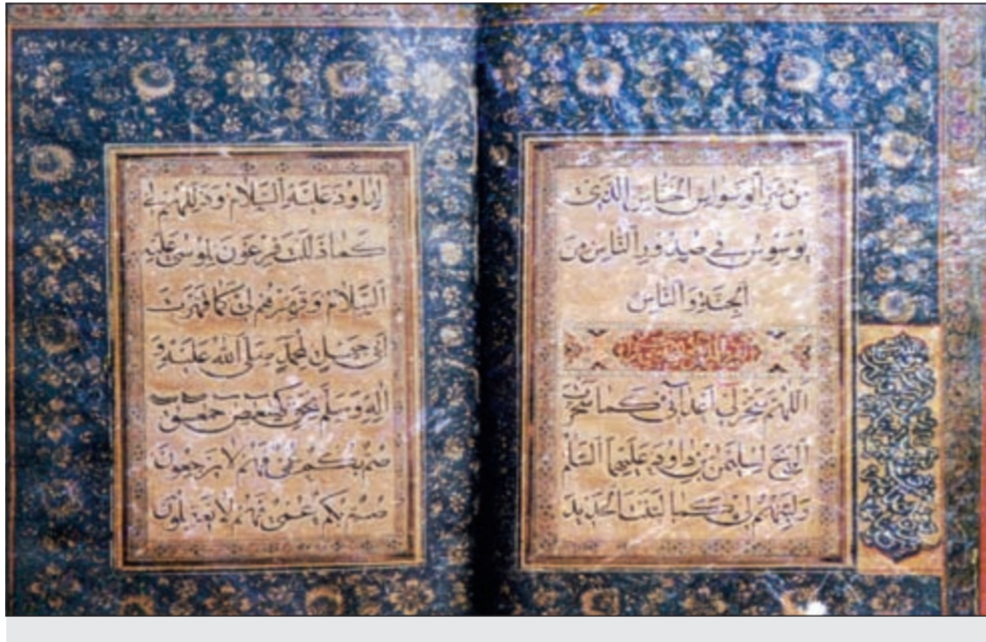 من شر الوسواس الخناس الذى
يوسوس فى صدور الناس من
الجنة والناس
اللهم سخر لى اعدائى كما سخرت
الريح لسليمن بن داود عليهما السلم
ولينهم لى كما لينت الحديد
لداود عليه السلام وذللهم لى
كما ذللت فرعون لموسى عليه
السلام وقهرهم لى كما قهرت
ابى جهل لمحمد صلى الله عليه و
اله وسلم بحق كهيعص حمعسق
صم بكم عمى فهم لا يرجعون
صم بكم عمى فهم لا يعقلون